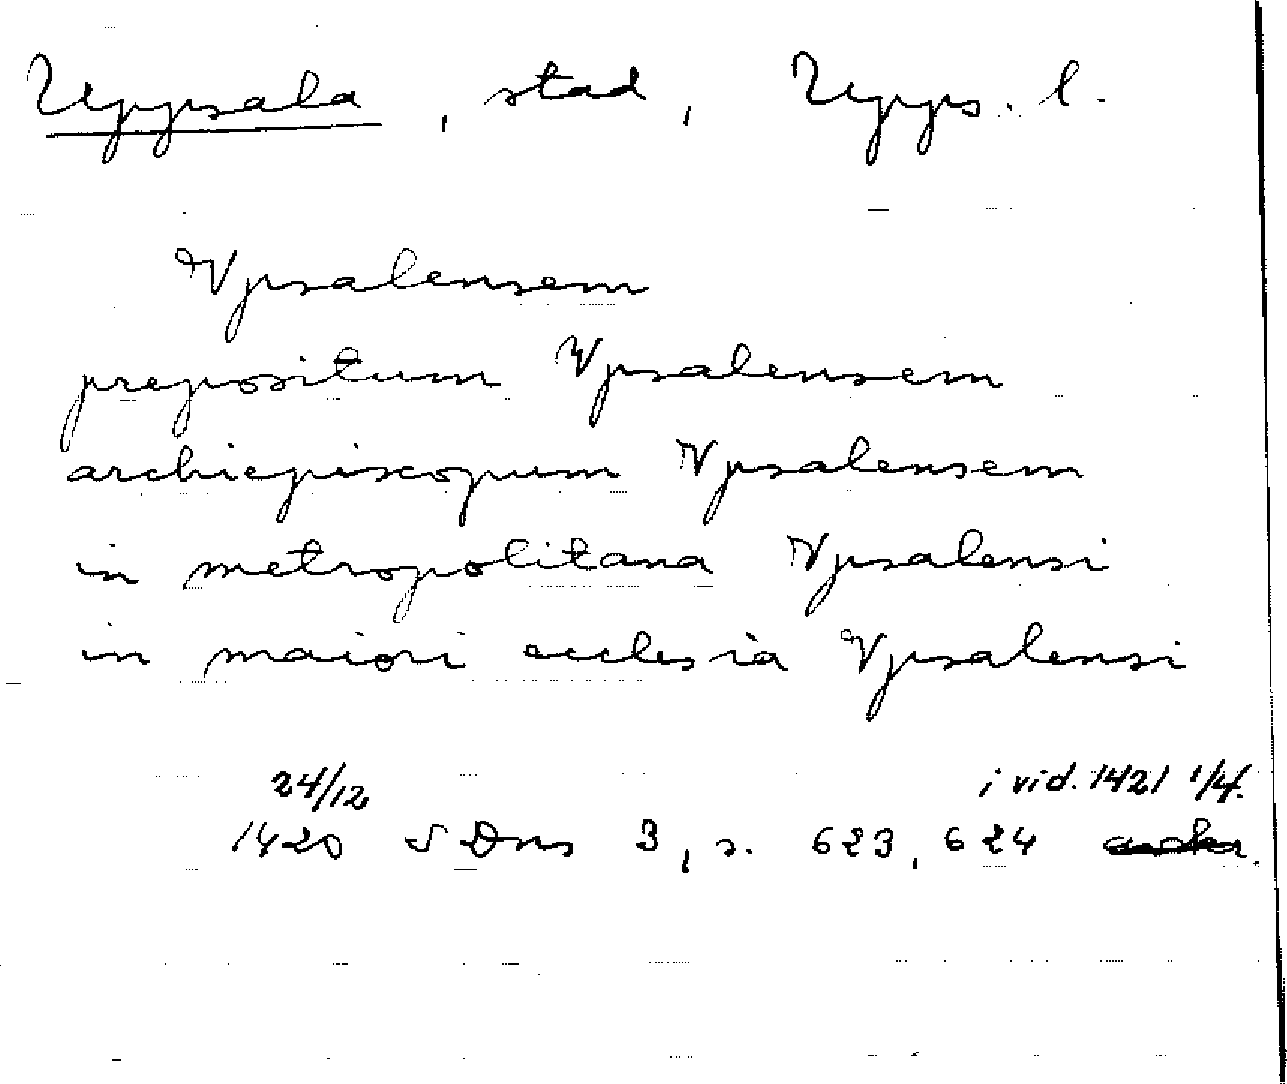 Uppsala, stad, Upps. l.
Vpsalensem
prepositum Vpsalensem
archiepiscopum Vpsalensem
in metropolitana Vpsalensi
in maiori ecclesia Vpsalensi
24/12 i vid. 1421 1/4.
1420 SDns 3, s. 623, 624